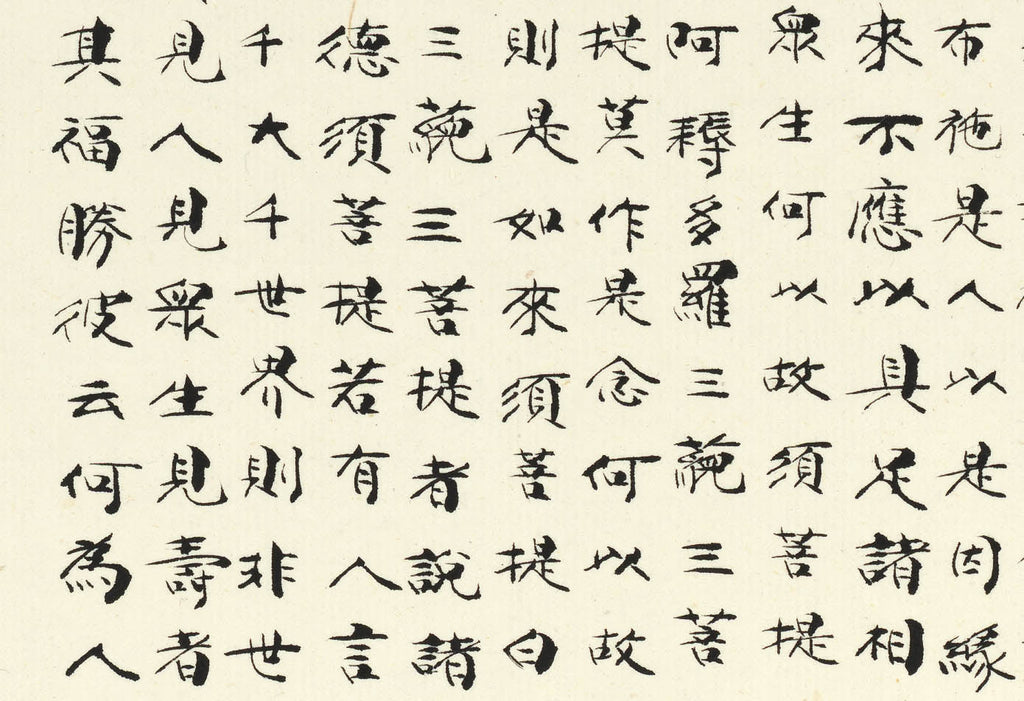 布施是人以是因緣
來不應以具足諸相
眾生何以故須菩提
阿耨多羅三藐三菩
提莫作是念何以故
則是如來須菩提白
三藐三菩提者說諸
德須菩提若有人言
千大千世界則非世
見人見眾生見壽者
其福勝彼云何為人